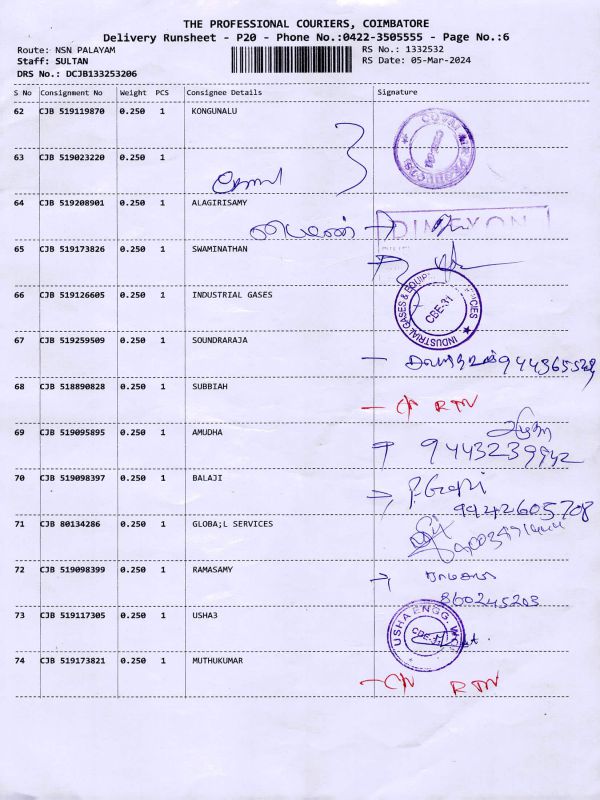 THE PROFESSIONAL COURIERS, COIMBATORE
Delivery Runsheet - P20 - Phone No.:0422-3505555 - Page No.:6
Route: NSN PALAYAM
RS No.: 1332532
Staff: SULTAN
RS Date: 05-Mar-2024
DRS No.: DCJB133253206
S No Consignment No Weight PCS Consignee Details Signature
62 CJB 519119870 0.250 1 KONGUNALU
63 CJB 519023220 0.250 1
64 CJB 519208901 0.250 1 ALAGIRISAMY
65 CJB 519173826 0.250 1 SWAMINATHAN
66 CJB 519126605 0.250 1 INDUSTRIAL GASES
CBE-31
67 CJB 519259509 0.250 1 SOUNDRARAJA
68 CJB 518890828 0.250 1 SUBBIAH
RTN
69 CJB 519095895 0.250 1 AMUDHA
70 CJB 519098397 0.250 1 BALAJI
P. Gopi
9942605708
71 CJB 80134286 0.250 1 GLOBA;L SERVICES
72 CJB 519098399 0.250 1 RAMASAMY
860245203
73 CJB 519117305 0.250 1 USHA3
USHA ENGG. WORKS
74 CJB 519173821 0.250 1 MUTHUKUMAR
RTN